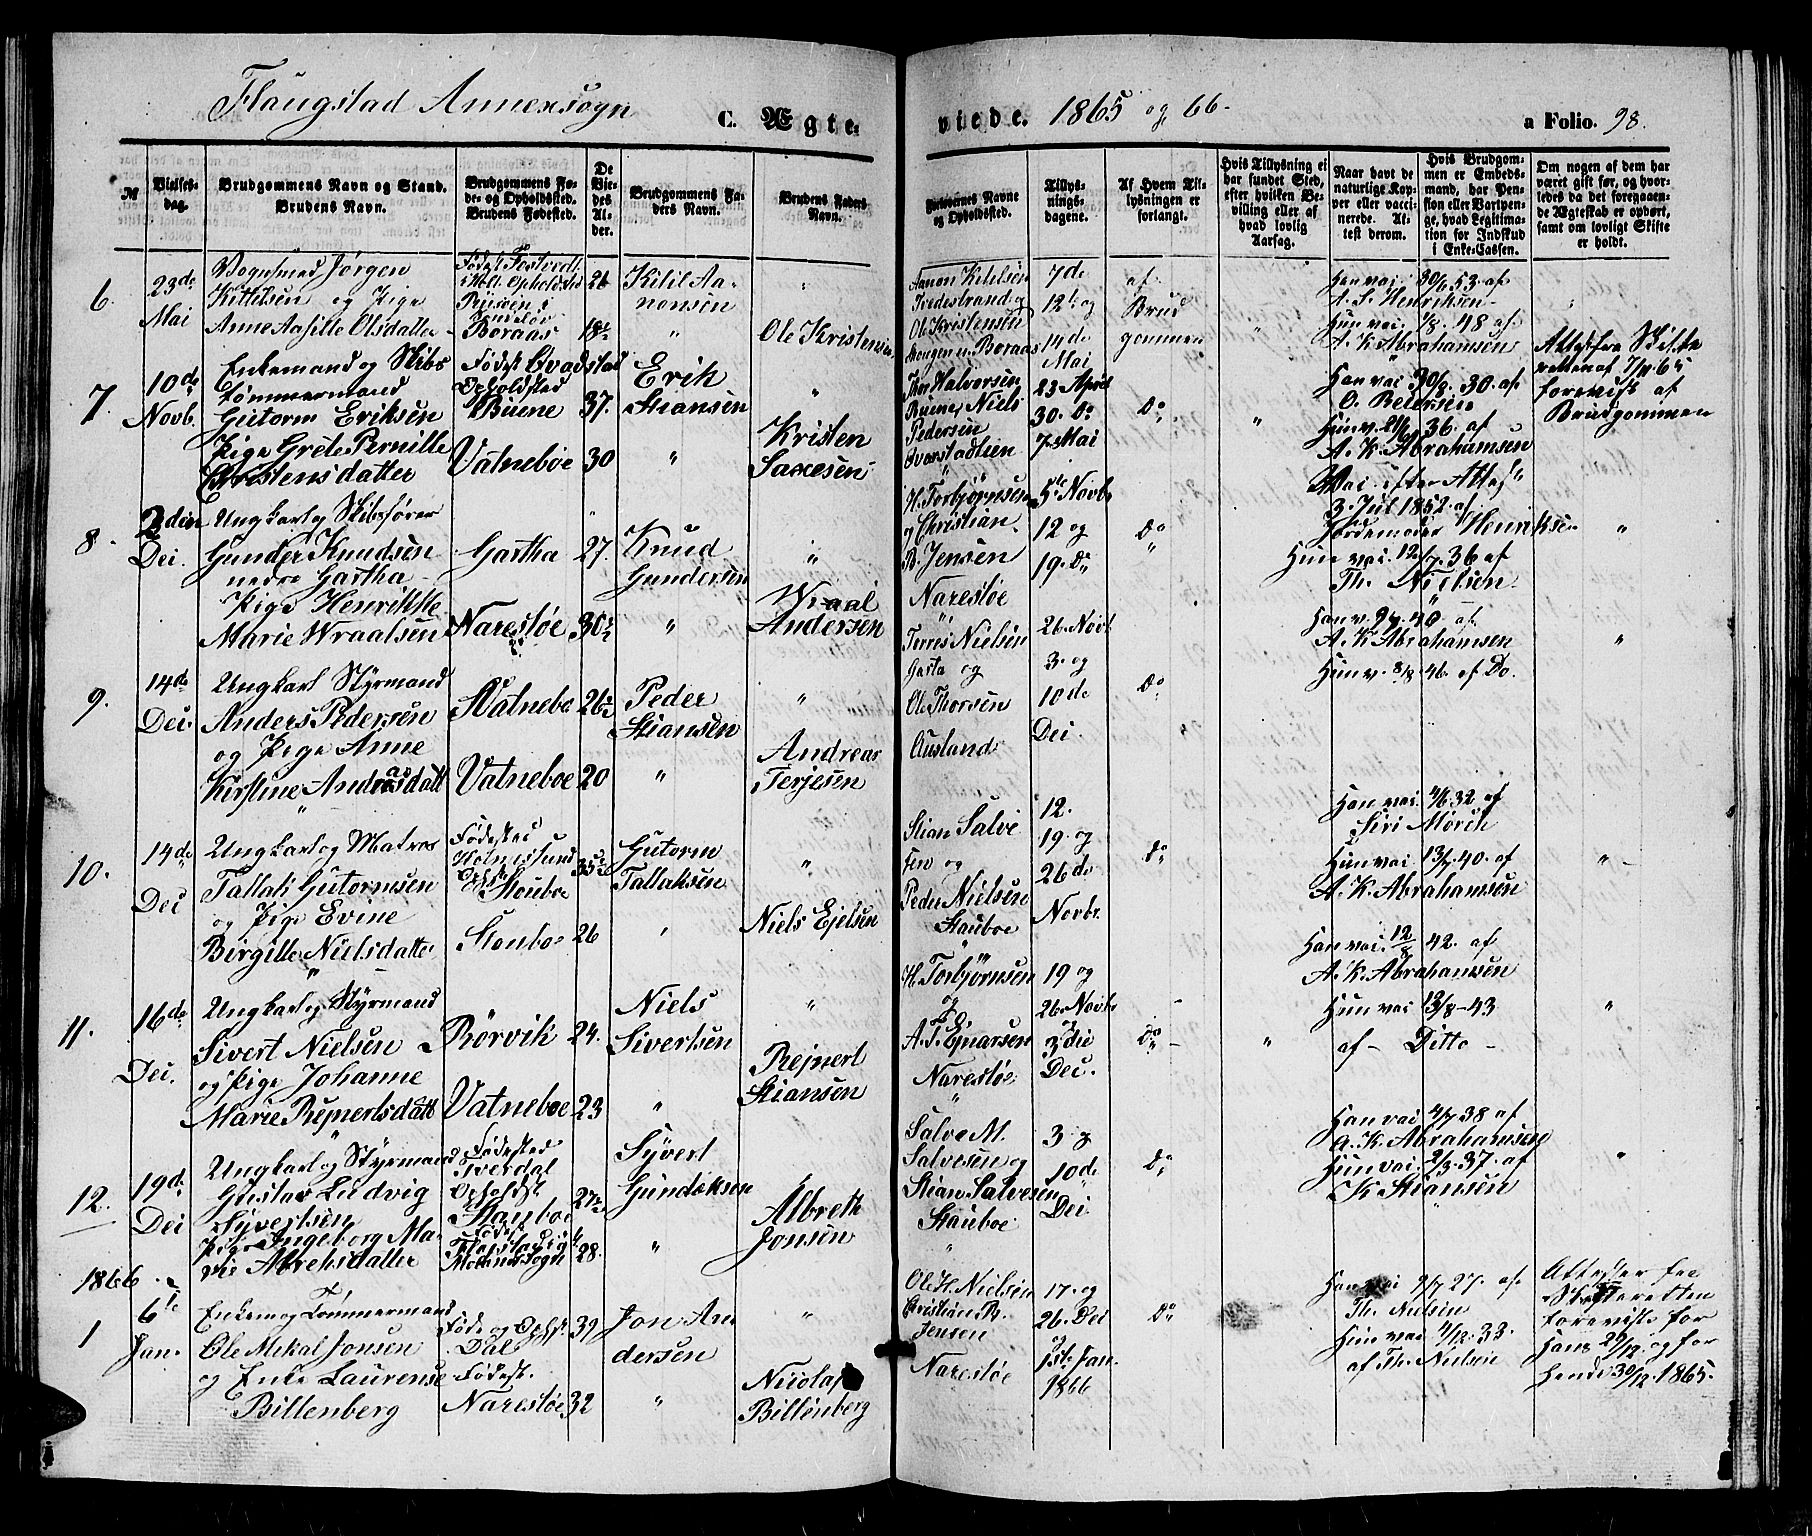 Flaugstad Annexsogn
C. Ægte-
viede. 1865 og 66.
a Folio. 98.
№
Vielses-
dag.
Brudgommens Navn og Stand.
Brudens Navn.
Brudgommens Fø-
de- og Opholdssted.
Brudens Fødested.
De
Vie-
des
Al-
der.
Brudgommens Fa-
ders Navn.
Brudens Faders
Navn.
Forlovernes Navne
og Opholdsted.
Tillys-
nings-
dagene.
Af Hvem Til-
lysningen er
forlangt.
Hvis Tillysning ei
har fundet Sted,
efter hvilken Be-
villing eller af
hvad lovlig
Aarsag.
Naar havt de
naturlige Kop-
per eller vacci-
nerede. At-
test derom.
Hvis Brudgom-
men er Embeds-
mand, har Pen-
sion eller Vartpen-
ge, hvad Legitima-
tion for Indskud
i Enke-Cassen.
Om nogen af dem har
været gift før, og hvor-
ledes da det foregaaen-
de Ægteskab er ophørt,
samt om lovligt Skifte
er holdt.
6.
23de
Mai
Jørgen
Kittelsen og Pige
Anne Aasille Olsdatter
Født
Boraas
26
18½
Kitil Aa-
nonsen
Ole Kristensen
Aanon Kitilsen
Tvedestrand og
Ole Kristensen
Boraas
7de
12te og
14de
Mai
af
Brud
gommen
Han vai 30/6 53 af
A. S. Henriksen
Hun vai 1/8. 48 af
A. K. Abrahamsen
7.
10de
Novb.
Enkemand og Skibs
tømmermand
Gutorm Eriksen
Pige Grete Pernille
Christensdatter
Født Qvadstad
Opholdsted
Buene
Vatneboe
37.
30
Erik
Stiansen
Kristen
Saxesen
Thor Halvorsen
Buene, Niels
Pedersen
Qvarstadlien
23 April
30. Do
7. Mai
Do
Han vai 30/8. 30. af
O. Petersen
Hun v. 36. af
A. K. Abrahamsen
Attest fra Skifte
retten af 7/4 65
forevist af
Brudgommen
8.
2den
Dec.
Ungkarl og Skibsfører
Gunder Knudsen
nedre Gartha
Pige Henrikke
Marie Wraalsen
Gartha
Narestøe
27.
30½
Knud
Gundersen
Wraal
Andersen
H. Torbjørnsen
og Christian
B. Jensen
Narestøe
5te Novb
12 og
19. Do
Do
Vai. efter Attest
3. Jul 1852 af
Jordemoder Henriksen
Hun vai. 12/7. 36 af
Th. Nielsen
9.
14de
Dec.
Ungkarl Styrmand
Anders Pedersen
og Pige Anne
Kirstine Andreasdatt
Vatneboe
Vatneboe
26½
20
Peder
Stiansen
Andreas
Terjesen
Terres Nielsen
Garta og
Ole Thorsen
Ausland
26. Novb
3. og
10de
Dec.
Do
Han v. 9/7 40 af
A. K. Abrahamsen
Hun v. 8/8 46. af Do.
10.
14de
Dec
Ungkarl og Matros
Tallak Gutormsen
og Pige Evine
Birgitte Nielsdatter
Fødested
Holmessund
Opholdst
Stouboe
Stouboe
35½
26
Gutorm
Tallaksen
Niels Ejelsen
Stian Salve
sen og
Peder Nielsen
Stauboe
12.
19 og
26de
Novbr.
Do
Han vai. 4/6 32 af
Siri Mörch
Hun vai 13/7. 40. af
A. K. Abrahamsen
11.
16de
Dec.
Ungkarl og Styrmand
Sivert Nielsen
og Pige Johanne
Marie Rejnertsdatt
Rørvik
Vatneboe
24.
23
Niels
Sivertsen
Rejnert
Stiansen
H. Torbjørnsen
og
A. T. Ejnarsen
Narestøe
19 og
26. Novb
og
3die
Dec.
Do
Han vai. 12/8 42. af
A. K. Abrahamsen
Hun vai 13/8 - 43
af - Ditto -
12.
19de
Dec
Ungkarl og Styrmand
Gustav Ludvig
Syvertsen
Pige Ingeborg Ma-
rie Abrehsdatter
Fødested
Sverdal
Opholdst
Stauboe
Født
27½
28.
Syvert
Gundeksen
Albreth
Jonsen
Salve M.
Salvesen og
Stian Salvesen
Stauboe
3 og
10de
Dec
Do
Han vai 4/7 38 af
A. K. Abrahamsen
Hun vai. 2/3. 37. af
K Stiansen
1866.
1
6te
Jan.
Enkem og Tømmermand
Ole Mekal Jonsen
og Enke Laurense
Billenberg
Føde og Opholdst
Dal
Fødest.
Narestøe
39
32
Jon An
dersen
Nicolai
Billenberg
Ole H. Nielsen
Christian B.
Jensen
Narestøe
17. og
26. Dec
og
1ste Jan
1866
Do
Han vai 9/7 27. af
Th. Nielsen
Hun vai 4/12. 33.
af Th. Nielsen
Attester fra
Skifteretten
foreviste for
Ham 29/12. og for
Hende 30/12. 1865.